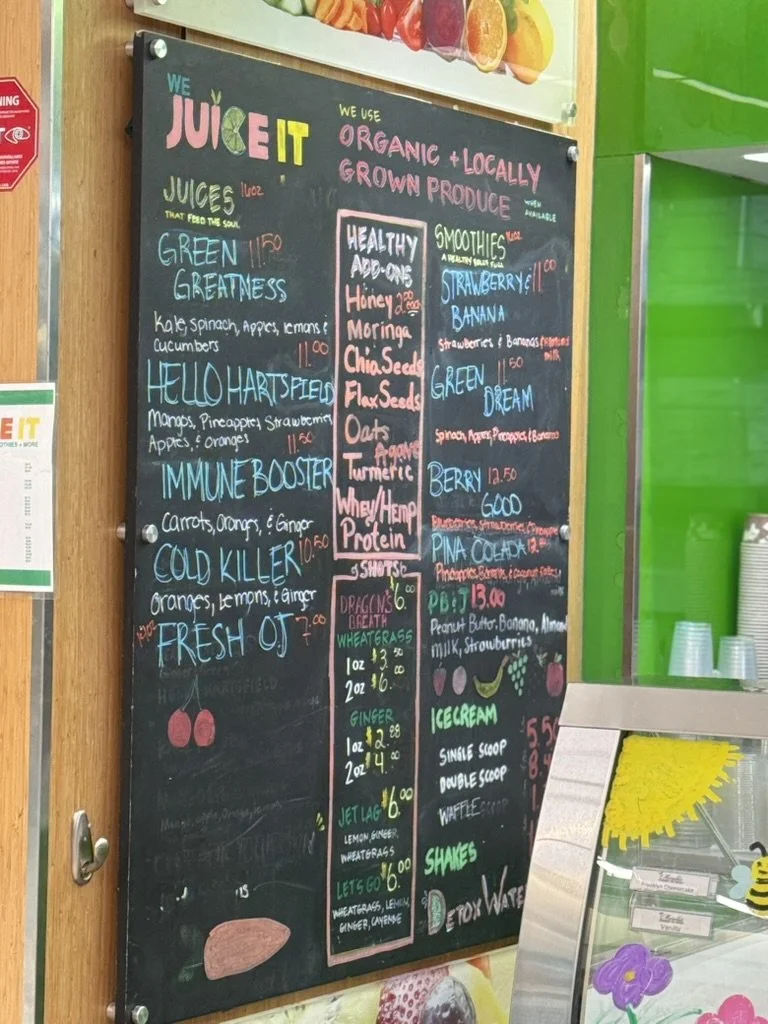 WE
JUICE IT
WE USE
ORGANIC + LOCALLY
GROWN PRODUCE
WHEN
AVAILABLE
JUICES 16oz
THAT FEED THE SOUL
GREEN 11.50
GREATNESS
Kale, Spinach, Apples, lemons &
Cucumbers
11.00
HELLO HARTSFIELD
Mangos, Pineapples, Strawberries
Apples, & Oranges
11.50
IMMUNE BOOSTER
Carrots, Oranges, & Ginger
COLD KILLER 10.50
Oranges, Lemons, & Ginger
FRESH OJ 7.00
HEALTHY
ADD-ONS
Honey 2.00
Moringa
Chia Seeds
Flax Seeds
Oats
Agave
Turmeric
Whey/Hemp
Protein
SHOTS
DRAGON'S $6.00
BREATH
WHEATGRASS
1oz $3.50
2oz $6.00
GINGER
1oz $2.88
2oz $4.00
JET LAG $6.00
LEMON, GINGER,
WHEATGRASS
LETS GO $6.00
WHEATGRASS, LEMON,
GINGER, CAYENNE
SMOOTHIES 16oz
A HEALTHY BELLY FULL
STRAWBERRY & 11.00
BANANA
Strawberries & Bananas
milk
GREEN 11.50
DREAM
Spinach, Apples, Pineapples, & Banana
BERRY 12.50
GOOD
Blueberries, Strawberries, & Pineapple
PINA COLADA 12
Pineapples, Bananas, & Coconut flakes
PB & J 13.00
Peanut Butter, Banana, Almond
milk, Strawberries
ICECREAM
SINGLE SCOOP
DOUBLE SCOOP
WAFFLE
SHAKES
DETOX WATE
E IT
Vanilla